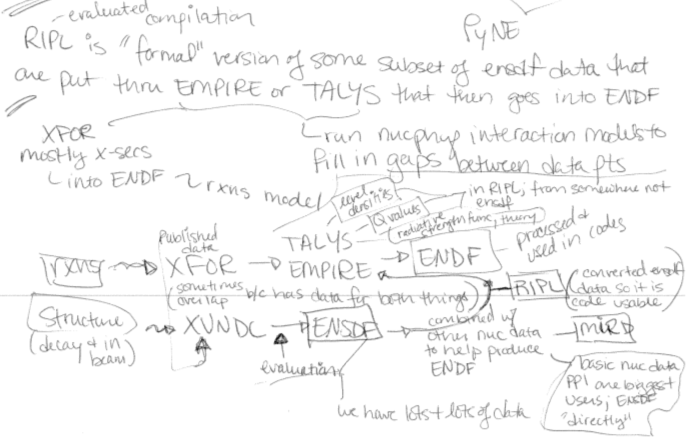 - evaluated compilation
PyNE
RIPL is "formal" version of some subset of ensdf data that
are put thru EMPIRE or TALYS that then goes into ENDF
XFOR
mostly x-secs
into ENDF
run nucphys interaction models to
fill in gaps between data pts
rxns model
level densities
Q values
radiative strength func, theory
in RIPL; from somewhere not
ensdf
Published
data
rxns
XFOR
TALYS
EMPIRE
ENDF
processed &
used in codes
(sometimes
overlap b/c has data for both things)
RIPL
(converted ensdf
data so it is
code usable)
Structure
(decay & in
beam)
XUNDC
ENSDF
combined w/
other nuc data
to help produce
ENDF
MIRD
evaluation
we have lots + lots of data
basic nuc data
PPl are biggest
users; ENSDF
"directly"